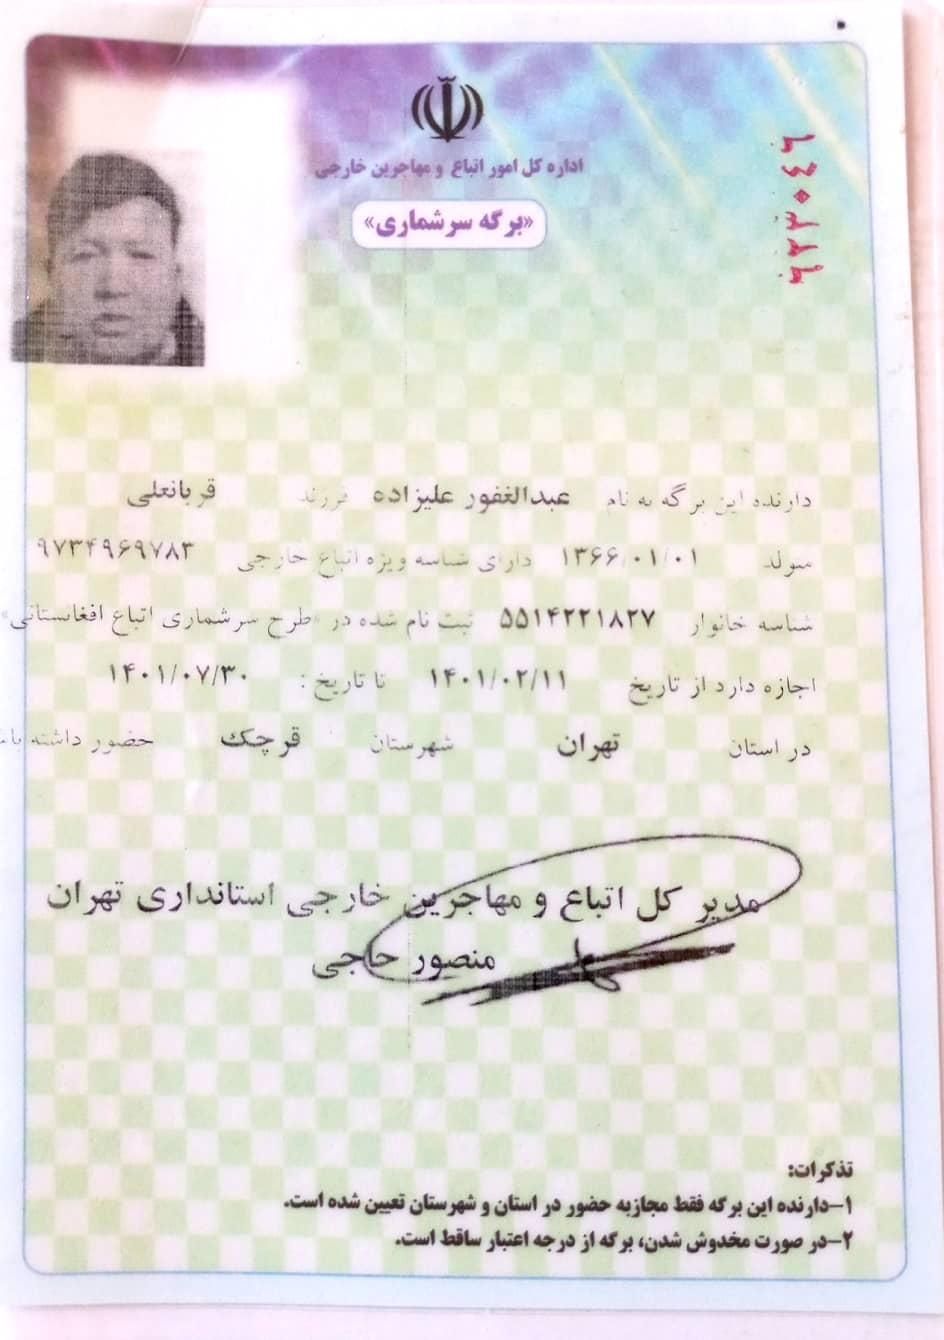 اداره کل امور اتباع و مهاجرین خارجی
«برگه سرشماری»
دارنده این برگه به نام عبدالغفور علیزاده فرزند قربانعلی
متولد ۱۳۶۶/۰۱/۰۱ دارای شناسه ویژه اتباع خارجی ۹۷۳۴۹۶۹۷۸۳
شناسه خانوار ۵۵۱۴۲۲۱۸۲۷ ثبت نام شده در «طرح سرشماری اتباع افغانستانی»
اجازه دارد از تاریخ ۱۴۰۱/۰۲/۱۱ تا تاریخ: ۱۴۰۱/۰۷/۳۰
در استان تهران شهرستان قرچک حضور داشته
مدیر کل اتباع و مهاجرین خارجی استانداری تهران
منصور حاجی
تذکرات:
۱-دارنده این برگه فقط مجاز به حضور در استان و شهرستان تعیین شده است.
۲-در صورت مخدوش شدن، برگه از درجه اعتبار ساقط است.